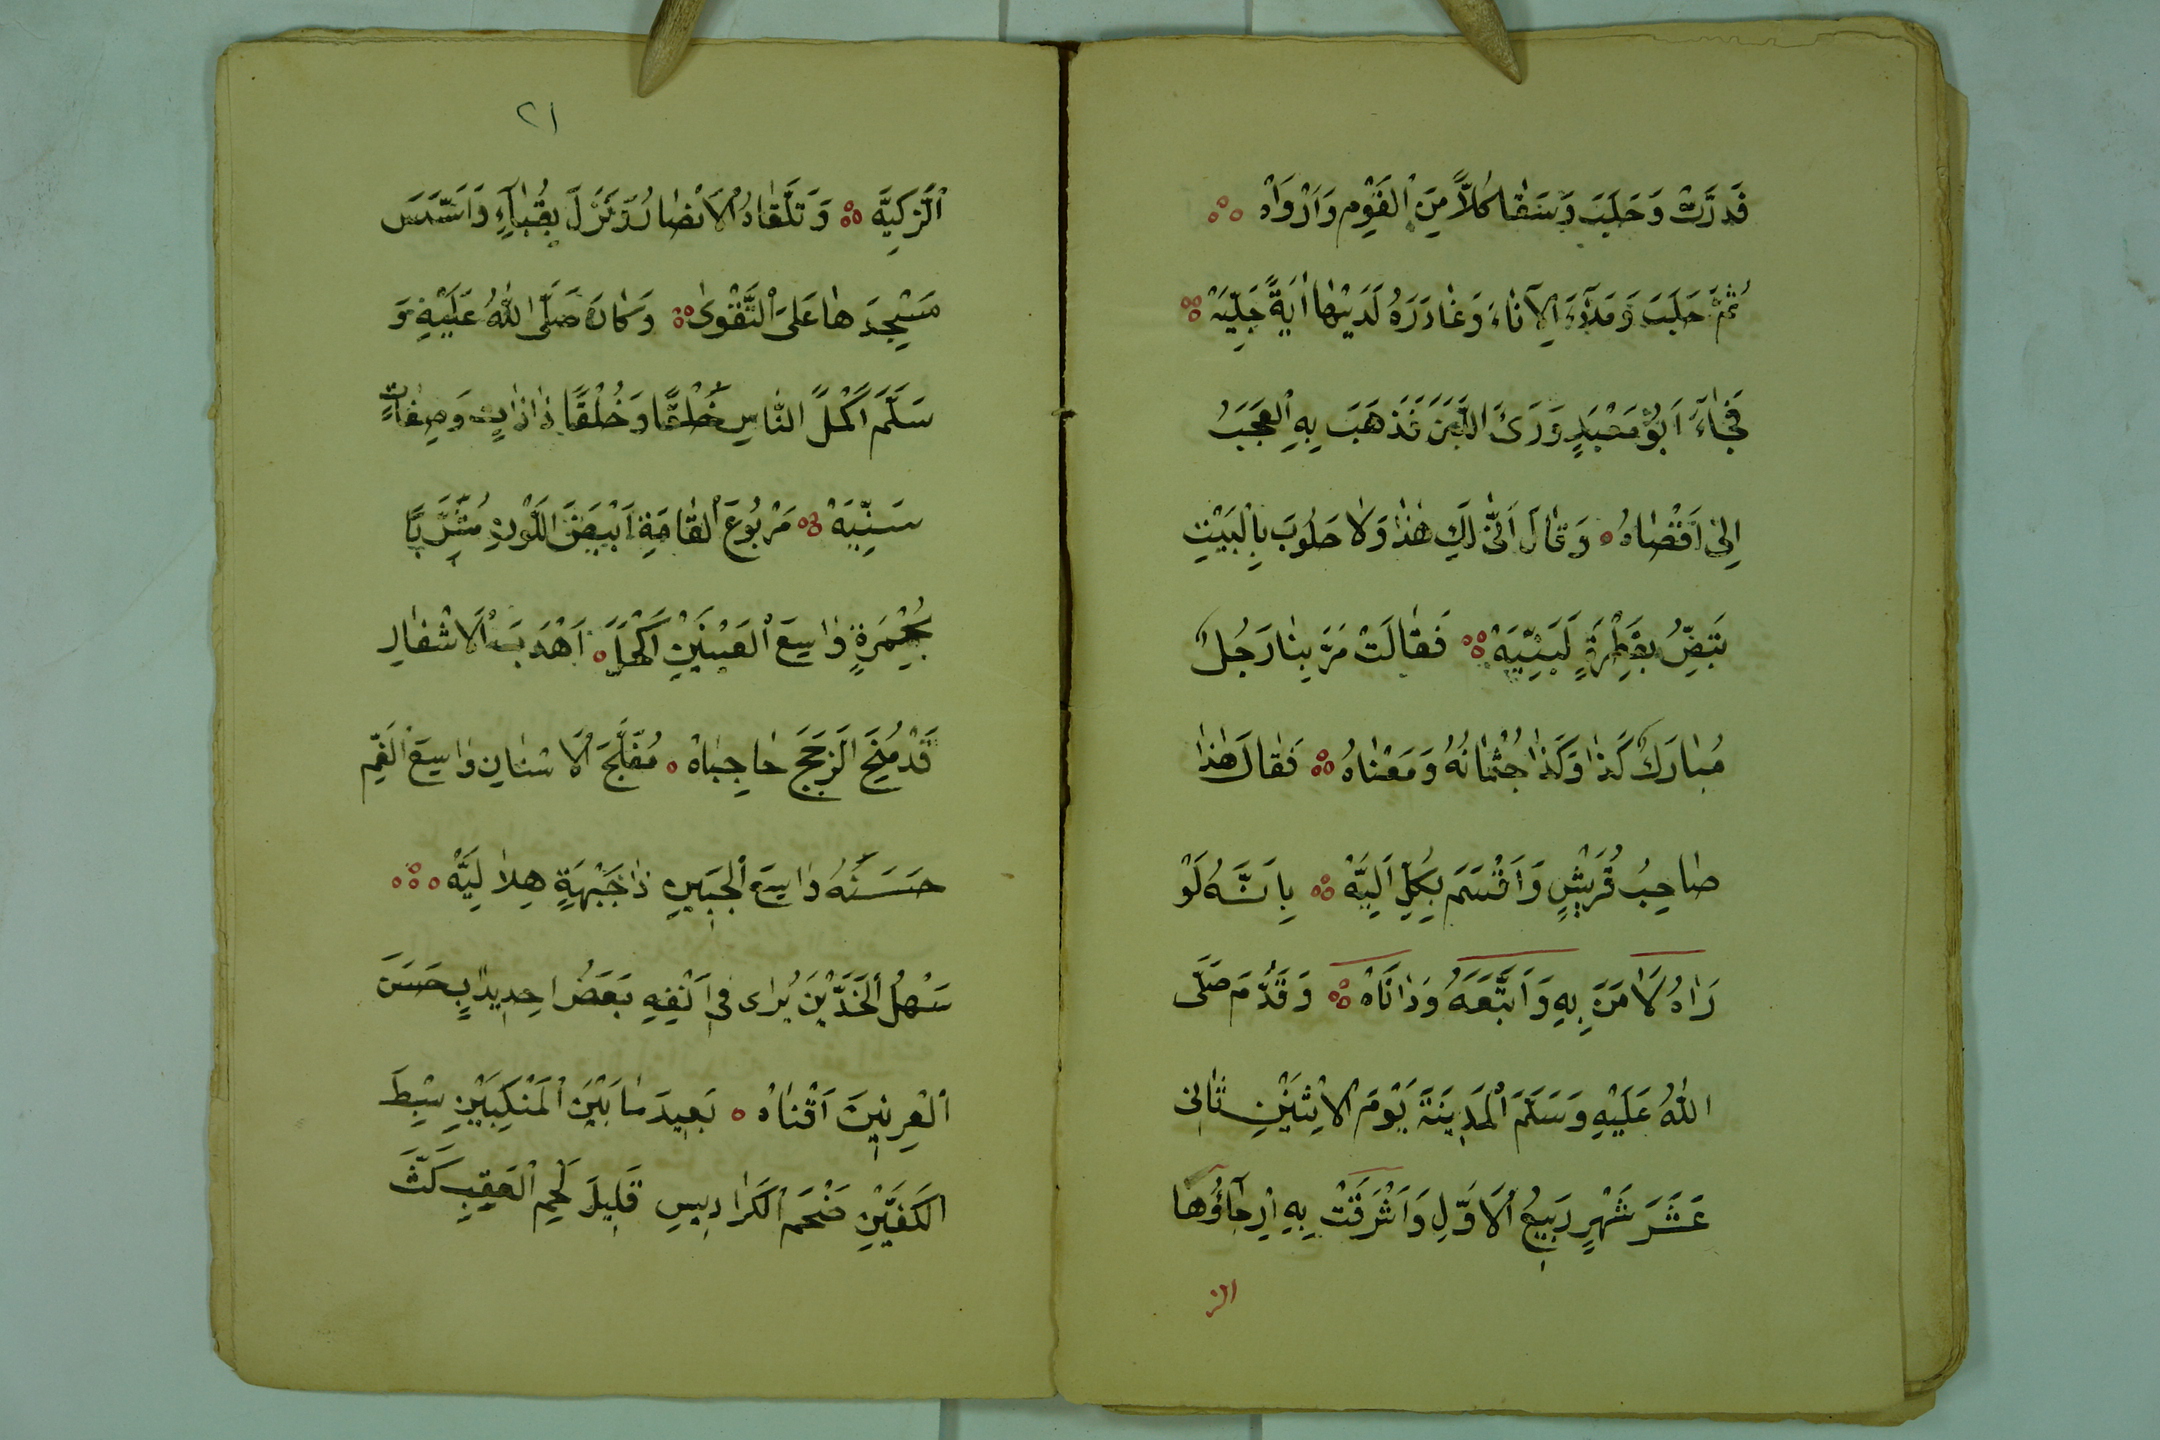 قَدَرَّتْ وَحَلَبَ وَسَقٰا كُلاًّ مِنَ الْقَوْمِ وَاَرْوَاهْ
ثُمَّ حَلَبَ وَمَلَاءَ الْاَنَاءَ وَغَادَرَهُ لَدَيْهَا اٰيَةً جَلِيَّهْ
فَجَاءَ اَبُو مَعْبَدٍ وَرَىَ اللَّبَنَ فَذَهَبَ بِهِ الْعَجَبُ
اِلىٰ اَقْصَاهُ وَقَالَ اَنّٰى لَكِ هٰذٰا وَلَا حَلُوبَ بِالْبَيْتِ
تَبِضُّ بِقَطْرَةٍ لَبَنِيَّهْ فَقٰالَتْ مَرَّ بِنٰا رَجُلٌ
مُبٰارَكٌ كَذٰا وَكَذٰا جُثْمٰانُهُ وَمَعْنٰاهُ فَقٰالَ هٰذٰا
صَاحِبُ قُرَيْشٍ وَاَقْسَمَ بِكُلِّ اَلِيَّهْ بِاَنَّهُ لَوْ
رَاهُ لَاٰمَنَ بِهِ وَاَتَّبَعَهُ وَدَانَاهْ وَقَدَّمَ صَلَّى
اللّٰهُ عَلَيْهِ وَسَلَّمَ الْمَدِينَةَ يَوْمَ الْاِثْنَيْنِ ثَانِى
عَشَرَ شَهْرِ رَبِيعُ الْاَوَّلِ وَاَشْرَقَتْ بِهِ اِرْجَاؤُهَا
الز
٢١
الزَّكِيَّه وَتَلَقَّاهُ الْاَنْصَارُ وَنَزَلَ بِقُبٰاءِ وَاَسَّسَ
مَسْجِدَهٰا عَلَى التَّقْوىٰ وَكَانَ صَلَّى اللّٰهُ عَلَيْهِ وَ
سَلَّمَ اَكْمَلَ النَّاسِ خُلْقًا وَخُلُقًا ذَا ذَاتٍ وَصِفَاتٍ
سَنِيَّهْ مَرْبُوعَ الْقَامَةِ اَبْيَضَ اللَّوْنِ مُشَرَّبًا
بِحُمْرَةٍ وَاسِعَ الْعَيْنَيْنِ اَكْحَلَ اَهْدَبَ الْاَشْفٰارِ
قَدْ مُنِحَ الزَّجَجَ حٰاجِبٰاهْ مُفَلَّجَ الْاَسْنٰانِ وٰاسِعَ الْفَمِ
حَسَنَهُ وٰاسِعَ الْجَبِينِ ذٰا جَبْهَةٍ هِلٰالِيَّهْ
سَهْلَ الْخَدَّيْنِ يُرٰاى فِى اَنْفِهِ بَعْضُ احْدِيدٰابٍ حَسَنَ
الْعِرْنِينَ اَقْنٰاهْ بَعِيدَ مٰا بَيْنَ الْمَنْكِبَيْنِ سَبْطَ
الْكَفَّيْنِ ضَخْمَ الْكَرٰادِيسِ قَلِيلَ لَحْمِ الْعَقِبِ كَثَّ